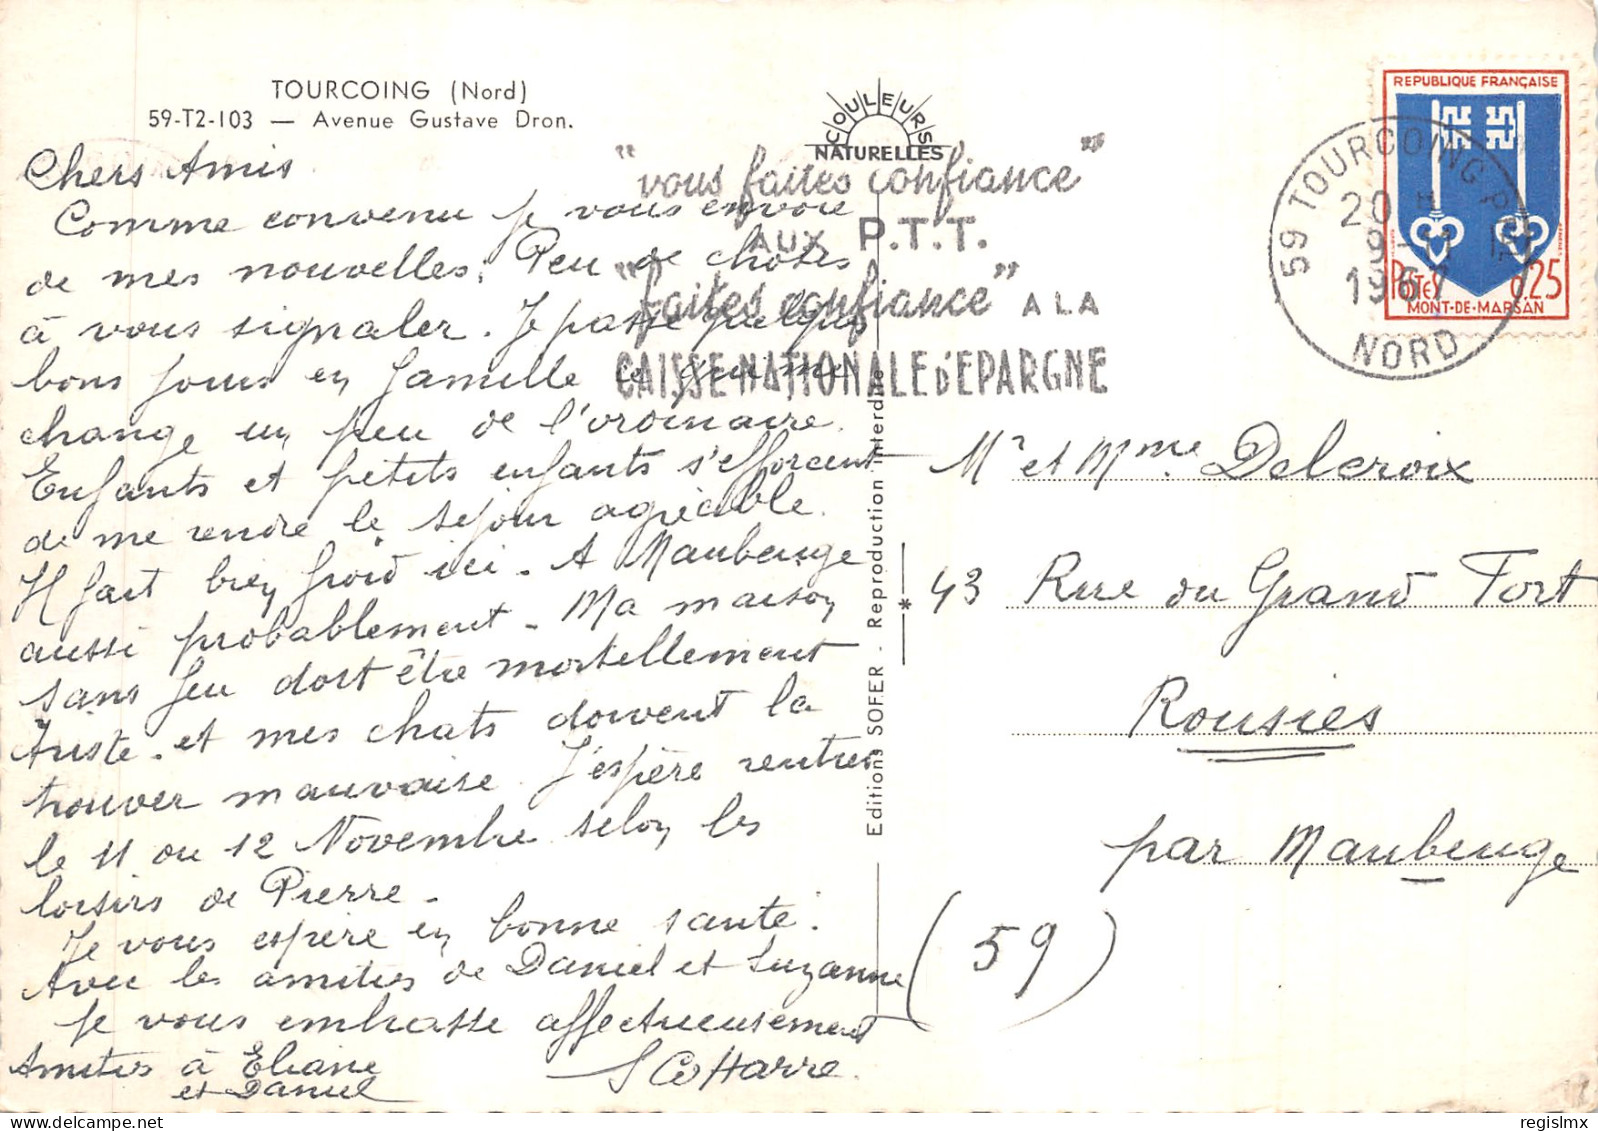 TOURCOING (Nord)
59-T2-103 — Avenue Gustave Dron.
Chers Amis
Comme convenu je vous envoie
de mes nouvelles. Peu de choses
à vous signaler. Je passe quelques
bons jours en famille ce qui me
change un peu de l'ordinaire.
Enfants et petits enfants s'efforcent
de me rendre le séjour agréable.
Il fait bien froid ici. A Maubeuge
aussi probablement. Ma maison
sans feu doit être mortellement
triste. et mes chats doivent la
trouver mauvaise. J'espère rentrer
le 11 ou 12 Novembre selon les
loisirs de Pierre.
Je vous espère en bonne santé.
Avec les amitiés de Daniel et Suzanne
je vous embrasse affectueusement
Amitiés à Eliane
et Daniel
COULEURS
NATURELLES
"vous faites confiance"
AUX P.T.T.
"faites confiance" A LA
CAISSE NATIONALE D'EPARGNE
Editions SOFER - Reproduction interdite
*
REPUBLIQUE FRANÇAISE
POSTES 0,25
MONT-DE-MARSAN
59 TOURCOING
20 H
9-11
1967
NORD
Mr et Mme Delcroix
43 Rue du Grand Fort
Rousies
par Maubeuge
(59)
regislmx